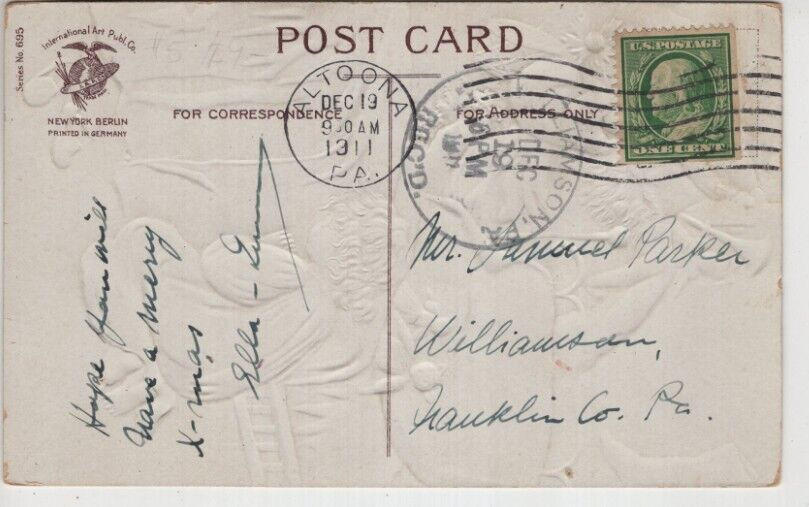 Series No. 695
International Art Publ. Co.
NEW YORK BERLIN
PRINTED IN GERMANY
POST CARD
FOR CORRESPONDENCE
FOR ADDRESS ONLY
ALTOONA
DEC 19
9 30 AM
1911
PA.
WILLIAMSON, PA.
DEC
19
PM
1911
REC'D.
U.S. POSTAGE
ONE CENT
Hope you will
have a merry
X-mas
Ella -
Mr. Samuel Parker
Williamson,
Franklin Co. Pa.